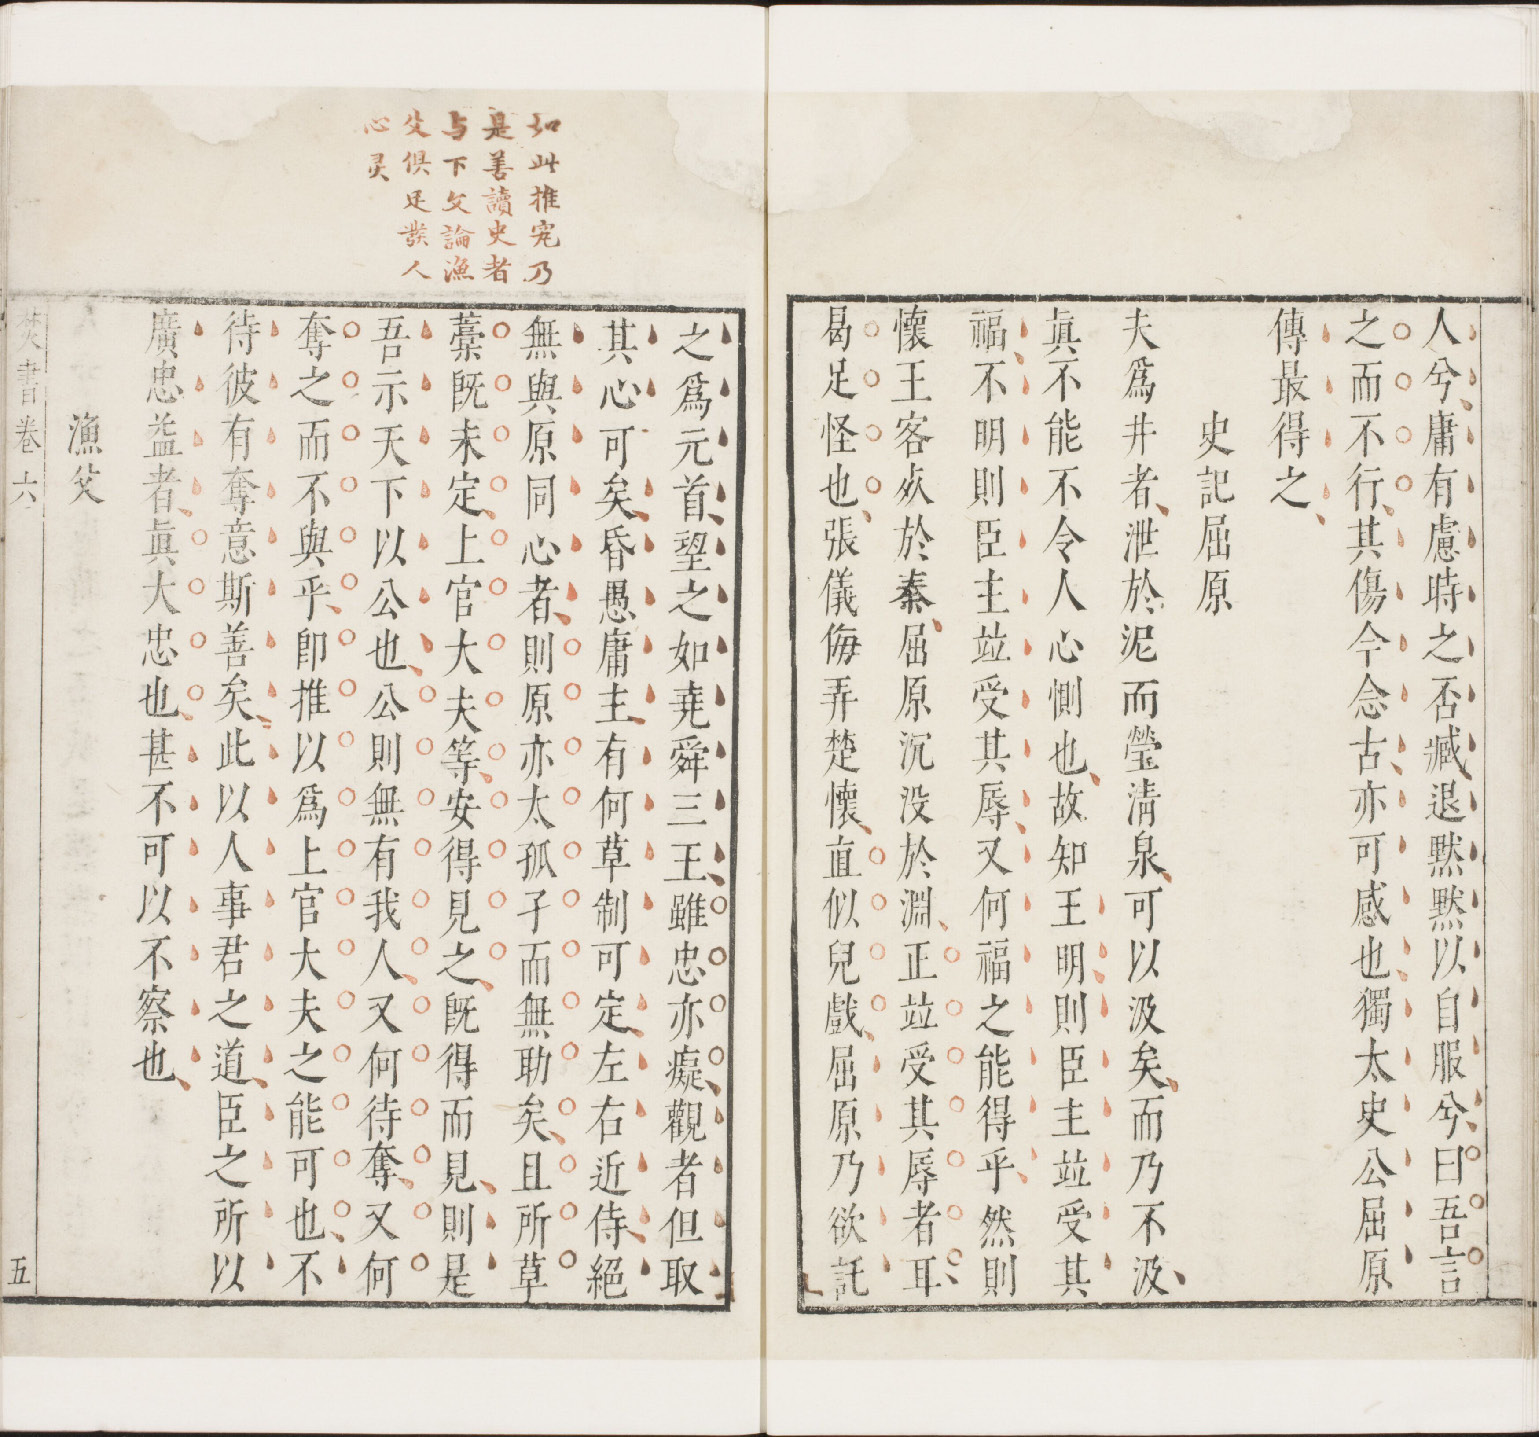 人兮庸有慮時之否臧退默默以自服兮曰吾言
之而不行其傷今念古亦可感也獨太史公屈原
傳最得之
史記屈原
夫爲井者泄於泥而瑩清泉可以汲矣而乃不汲
眞不能不令人心惻也故知王明則臣主竝受其
福不明則臣主竝受其辱又何福之能得乎然則
懷王客死於秦屈原沉没於淵正竝受其辱者耳
曷足怪也張儀侮弄楚懷直似兒戲屈原乃欲託
如此推究乃
是善讀史者
与下文論漁
父俱足發人
心灵
之爲元首望之如堯舜三王雖忠亦癡觀者但取
其心可矣昏愚庸主有何草制可定左右近侍絕
無與原同心者則原亦太孤孑而無助矣且所草
藁旣未定上官大夫等安得見之旣得而見則是
吾示天下以公也公則無有我人又何待奪又何
奪之而不與乎卽推以爲上官大夫之能可也不
待彼有奪意斯善矣此以人事君之道臣之所以
廣忠益者眞大忠也甚不可以不察也
漁父
焚書 卷六
五